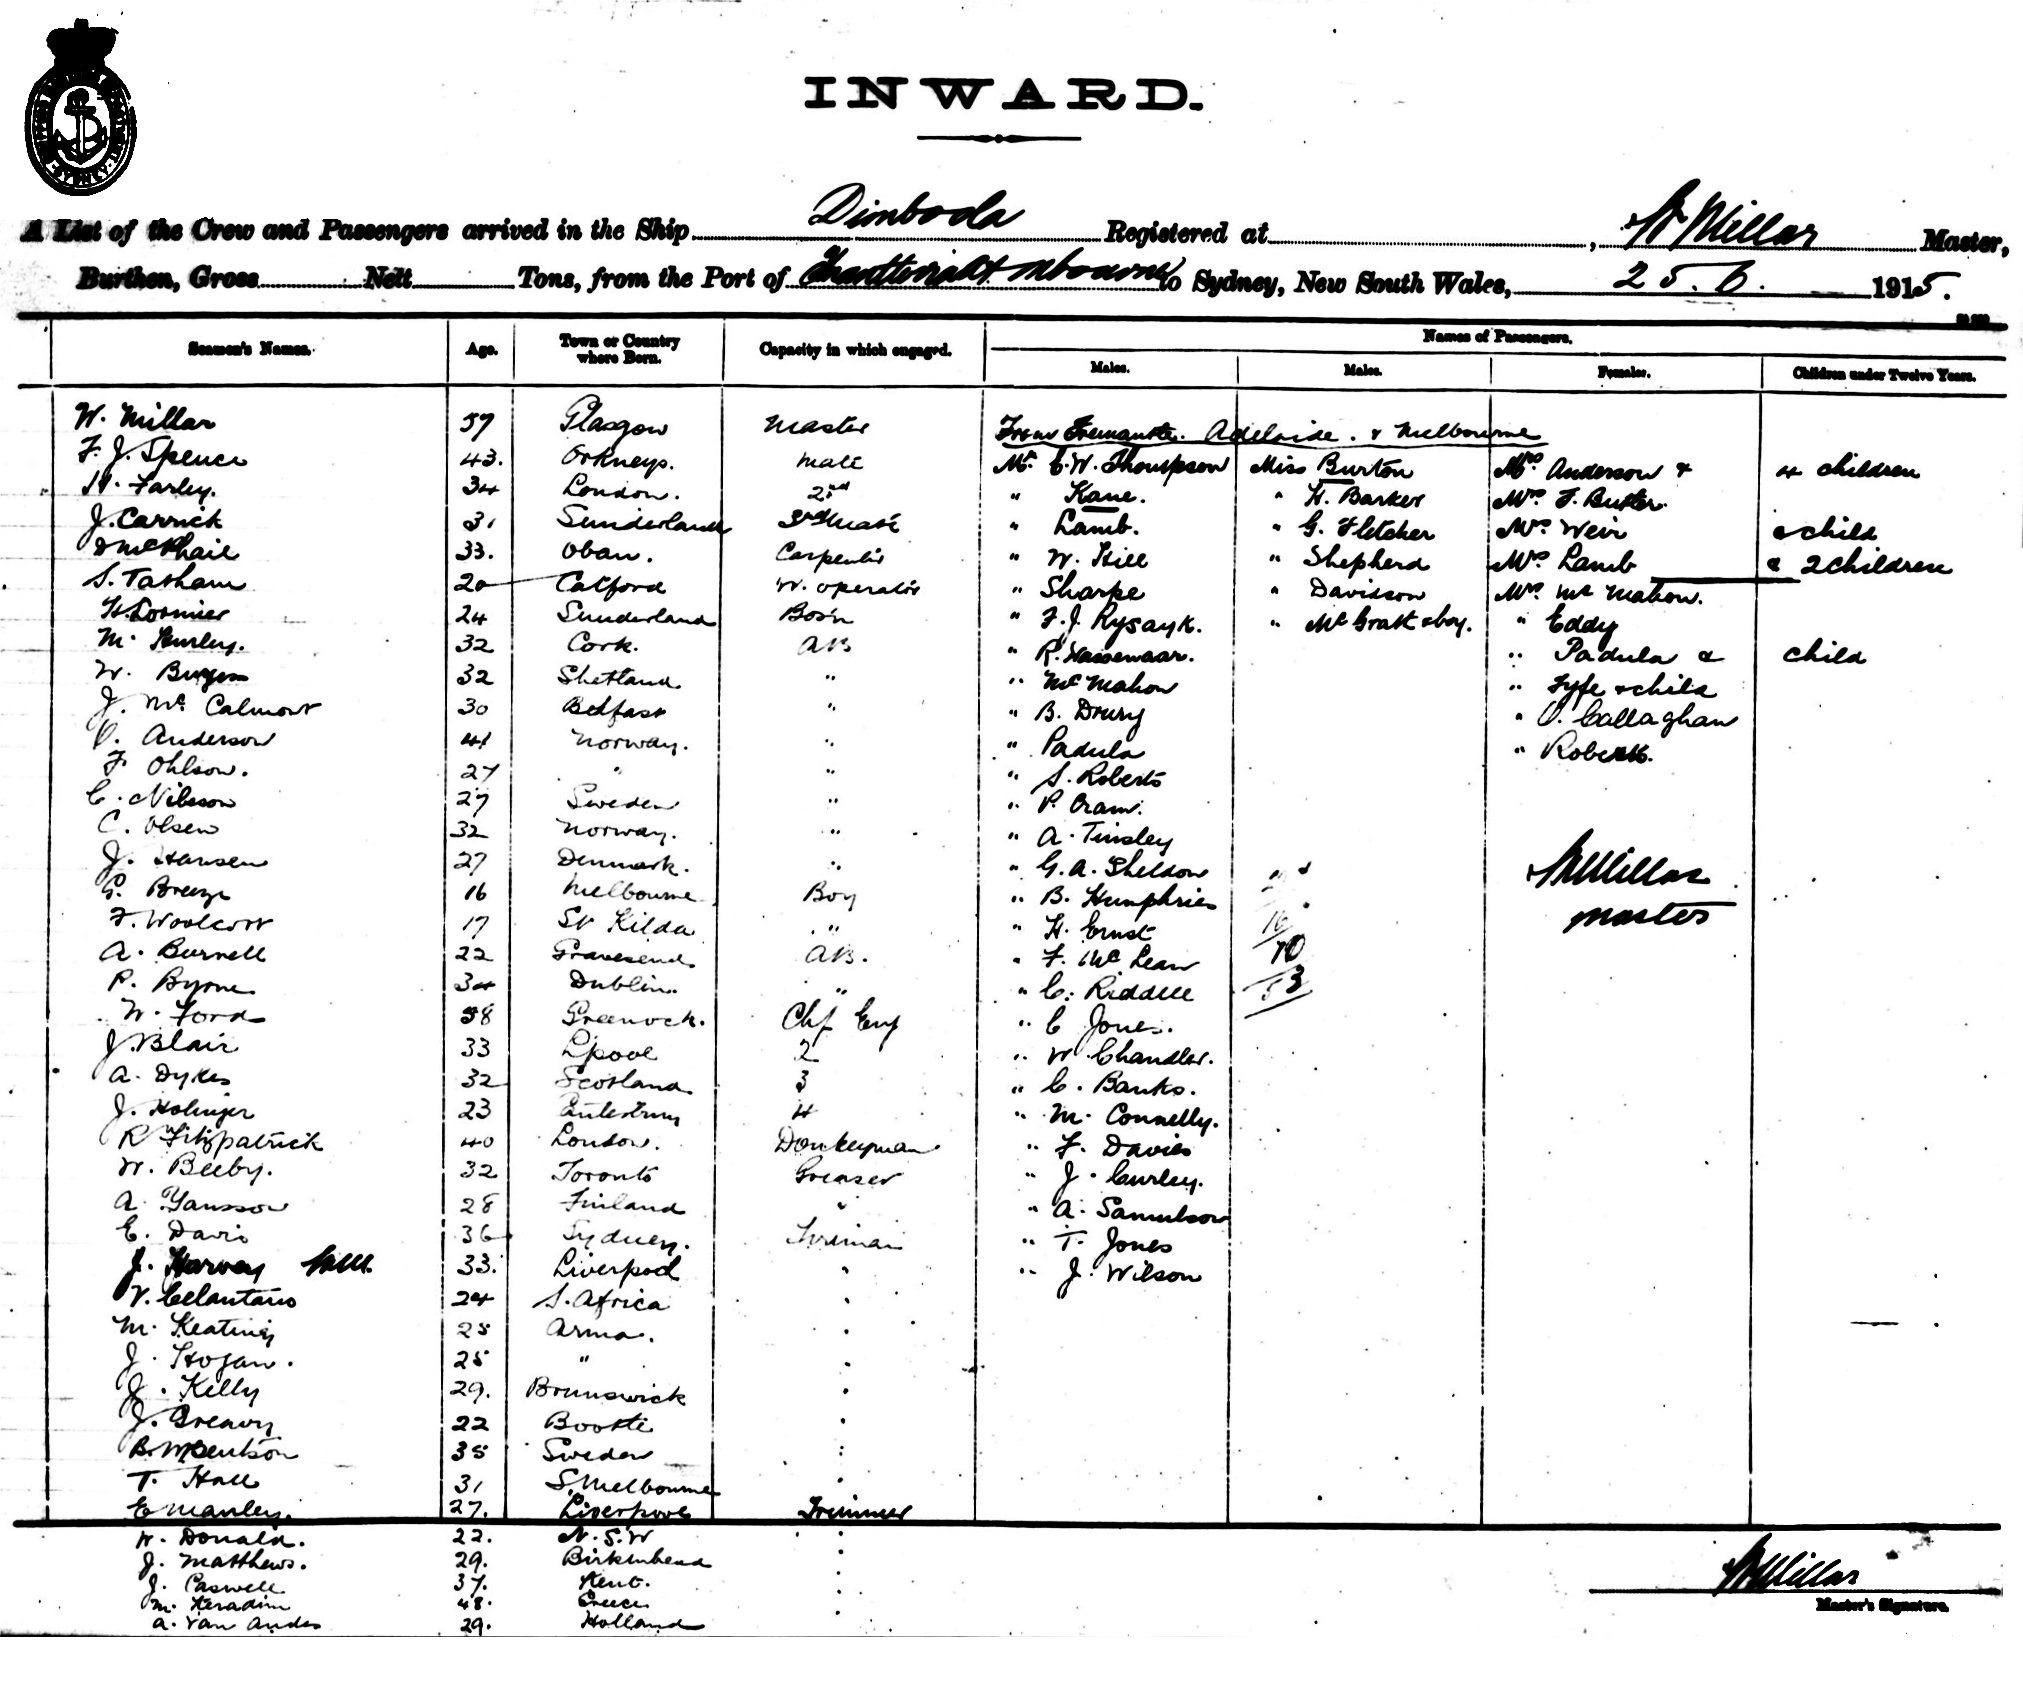 INWARD.
SYDNEY
A List of the Crew and Passengers arrived in the Ship Dimboola Registered at , W Millar Master,
Burthen, Gross Nett Tons, from the Port of to Sydney, New South Wales, 25.6. 1915.
Names of Passengers.
Seamen's Names. Age. Town or Country where Born. Capacity in which engaged. Males. Males. Females. Children under Twelve Years.
W. Millar 57 Glasgow Master From Fremantle. Adelaide. & Melbourne
F. J. Spence 43. Orkneys. Mate Mr. C. W. Thompson Miss Burton Mrs Anderson & 4 children
H. Farley. 34 London. 2nd " Kane. " H. Barker Mrs F. Butler.
J. Carrick 31 Sunderland 3rd Mate " Lamb. " G. Fletcher Mrs Weir & child
D McPhail 33. Oban. Carpenter " W. Hill " Shepherd Mrs Lamb & 2 children
S. Tatham 20 Catford W. operator " Sharpe " Davidson Mrs Mc Mahon.
H. Lorimer 24 Sunderland Bosn " F. J. Rysayk. " McGratt & boy. " Eddy
M. Hurley. 32 Cork. AB " R. Wassenaar. " Padula & child
W. 32 Shetland " " McMahon " Fyfe & child
J. Mc Calmont 30 Belfast " " B. Drury " O. Callaghan
O. Anderson 41 Norway. " " Padula " Roberts.
F. Ohlson. 27 " " " S. Roberts
C. Nilsson 27 Sweden " " P. Oram.
C. Olsen 32 Norway. " " A. Tinsley
J. Hansen 27 Denmark. " " G. A. Sheldon W Millar
G. Breeze 16 Melbourne Boy " B. Humphries Master
F. Woolcott 17 St Kilda " " H. Ernst 10
A. Burnell 22 Gravesend AB. " F. McLean 70
P. Byrne 34 Dublin. " " C. Riddle 53
W. Ford 58 Greenock. Chf Eng " C Jones.
J. Blair 33 Lpool 2 " W Chandler.
A. Dykes 32 Scotland 3 " C. Banks.
J. Holinger 23 4 " M. Connelly.
R Fitzpatrick 40 London. Donkeyman " F. Davies
W. Beeby. 32 Toronto Greaser " J. Curley.
A. Yansson 28 Finland " " A. Samulson
E. Davis 36 Sydney. Fireman " T. Jones
J. Harvey 33. Liverpool " " J. Wilson
V. Celantano 24 S. Africa "
M. Keating 25 Arma. "
J. Hogan. 25 " "
J. Kelly 29. Brunswick "
J. Greavy 22 Bootle "
B. 35 Sweden "
T. Hall 31 S. Melbourne "
E Manley. 27. Liverpool Trimmer
W. Donald. 22. N.S.W "
J. Matthews. 29. Birkenhead "
J. Caswell 37. Kent. "
M. Keradin 48. Greece "
A. Van Andes 29. Holland "
W Millar
Master's Signature.